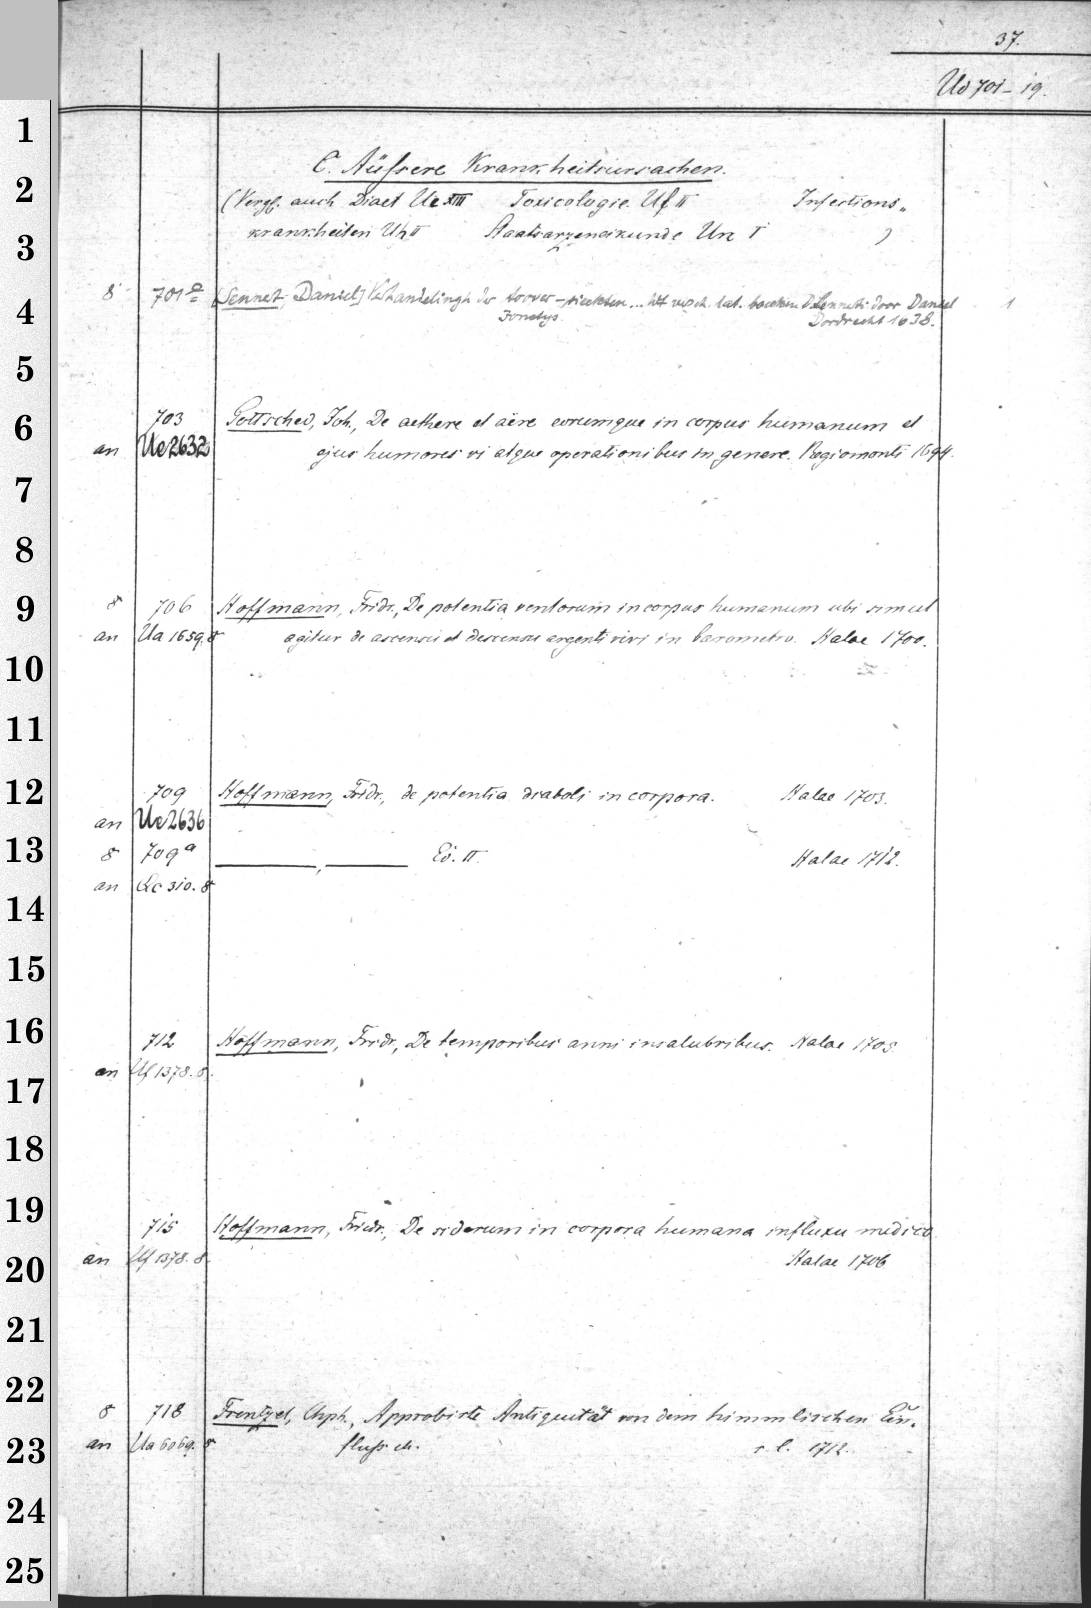 37.
Ud 701-19.
C. Äußere Krankheitsursachen.
(Vergl. auch Diaet Ue XIII Toxicologie Uf II Infections-
krankheiten Uh II Staatsarzeneikunde Un I )
8 701 a [Sennet, Daniel] Verhandelingh der toover-sieckten ... Sennerti door Daniel 1
Jonctys. Dordrecht 1638.
703 Gottsched, Joh., De aethere et aëre eorumque in corpus humanum et
an Ue2632 ejus humores vi atque operationibus in genere. Regiomonti 1694.
8 706 Hoffmann, Fridr., De potentia ventorum in corpus humanum ubi simul
an Ua 1659. 8 agitur de ascensu et descensu argenti vivi in barometro. Halae 1700.
709 Hoffmann, Fridr., de potentia diaboli in corpora. Halae 1703.
an Ue2636
8 709 a ———, ——— Ed. II. Halae 1712.
an Qc 310. 8
712 Hoffmann, Fridr., De temporibus anni insalubribus. Halae 1705
an Uf 1378. 8.
715 Hoffmann, Fridr., De siderum in corpora humana influxu medico
an Uf 1378. 8. Halae 1706
8 718 Frentzel, Chph., Approbirte Antiquität von dem himmlischen Ein-
an Ua 6069. 8 fluss etc. s. l. 1712.
1
2
3
4
5
6
7
8
9
10
11
12
13
14
15
16
17
18
19
20
21
22
23
24
25